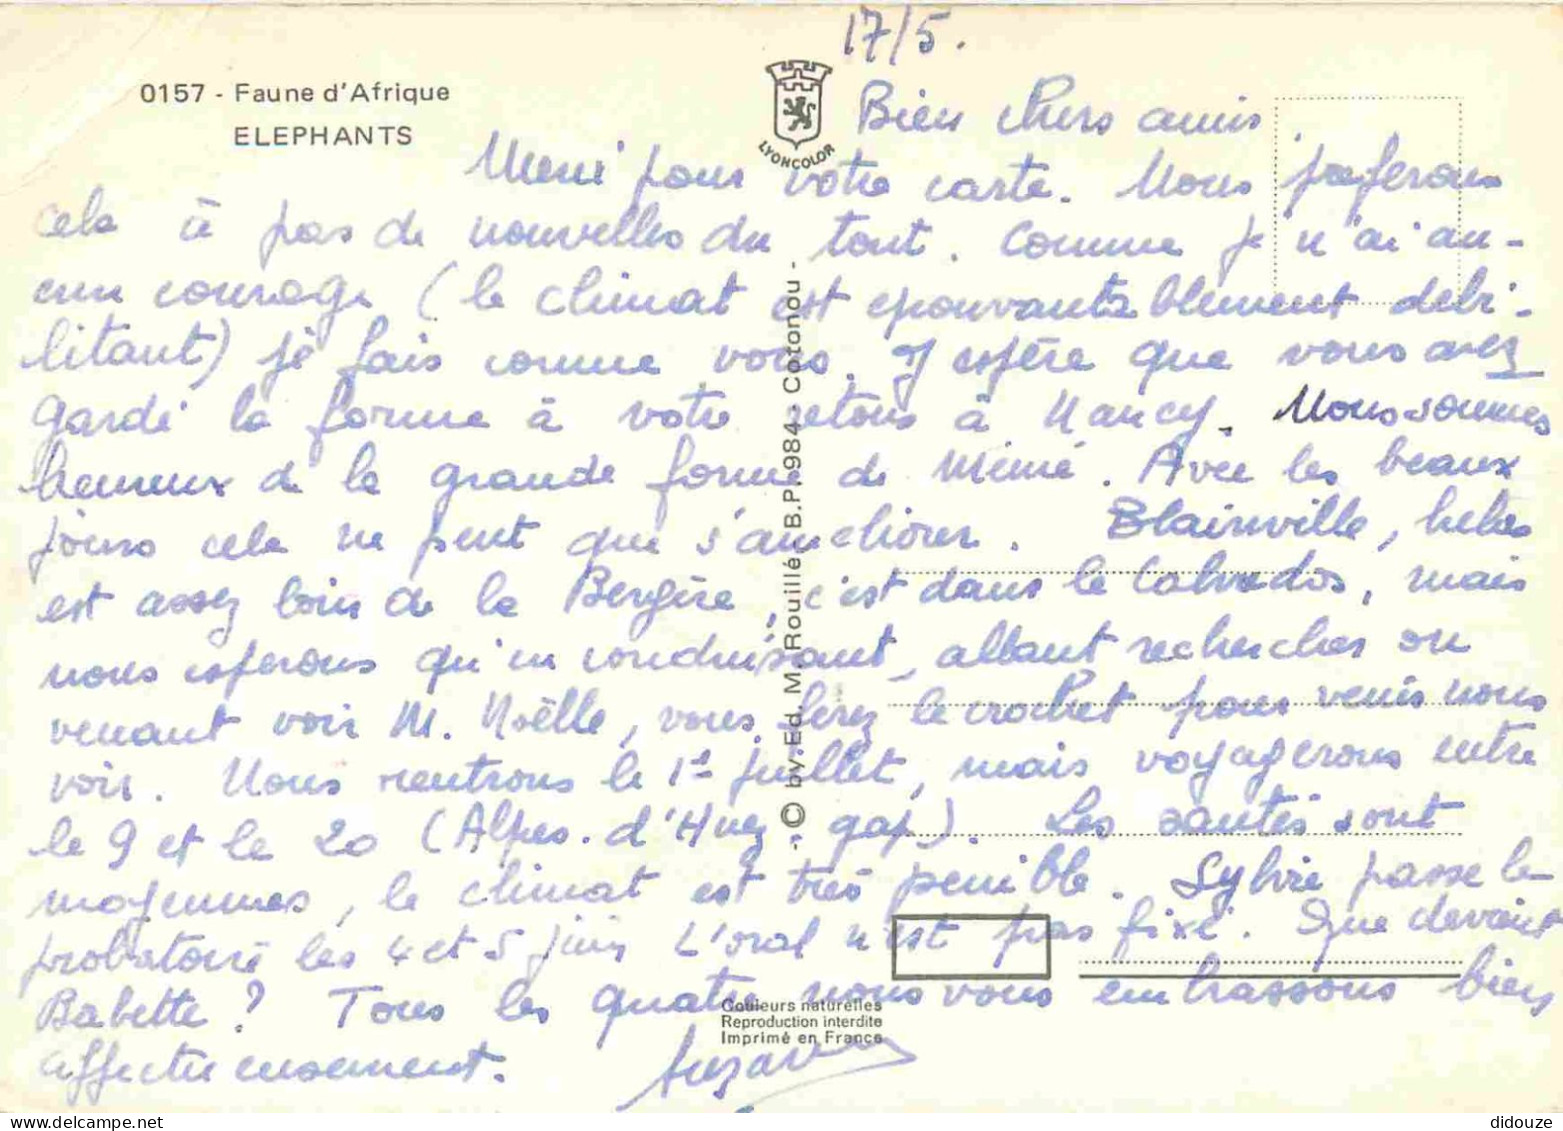 17/5.
0157 - Faune d'Afrique
ELEPHANTS
LYONCOLOR
Bien chers amis
Merci pour votre carte. Nous préferons
cela à pas de nouvelles du tout. Comme je n'ai au-
cun courage (le climat est epouvantablement debi-
litant) je fais comme vous. J'espère que vous avez
gardé la forme à votre retour à Nancy. Nous sommes
heureux de la grande forme de Mémé. Avec les beaux
jours cela ne peut que s'améliorer. Blainville, helas
est assez loin de la Bergère, c'est dans le Calvados, mais
nous esperons qu'en conduisant, allant rechercher ou
venant voir M. Noëlle, vous ferez le crochet pour venir nous
voir. Nous rentrons le 1er Juillet, mais voyagerons entre
le 9 et le 20 (Alpes. d'Huez. gap). Les santés sont
moyennes, le climat est très penible. Sylvie passe le
probatoire les 4 et 5 juin L'oral n'est pas fixé. Que devient
Babette ? Tous les quatre nous vous embrassons bien
affectueusement.
Suzanne
- © by Ed. M. Rouillé B.P. 984 - Cotonou -
Couleurs naturelles
Reproduction interdite
Imprimé en France
didouze